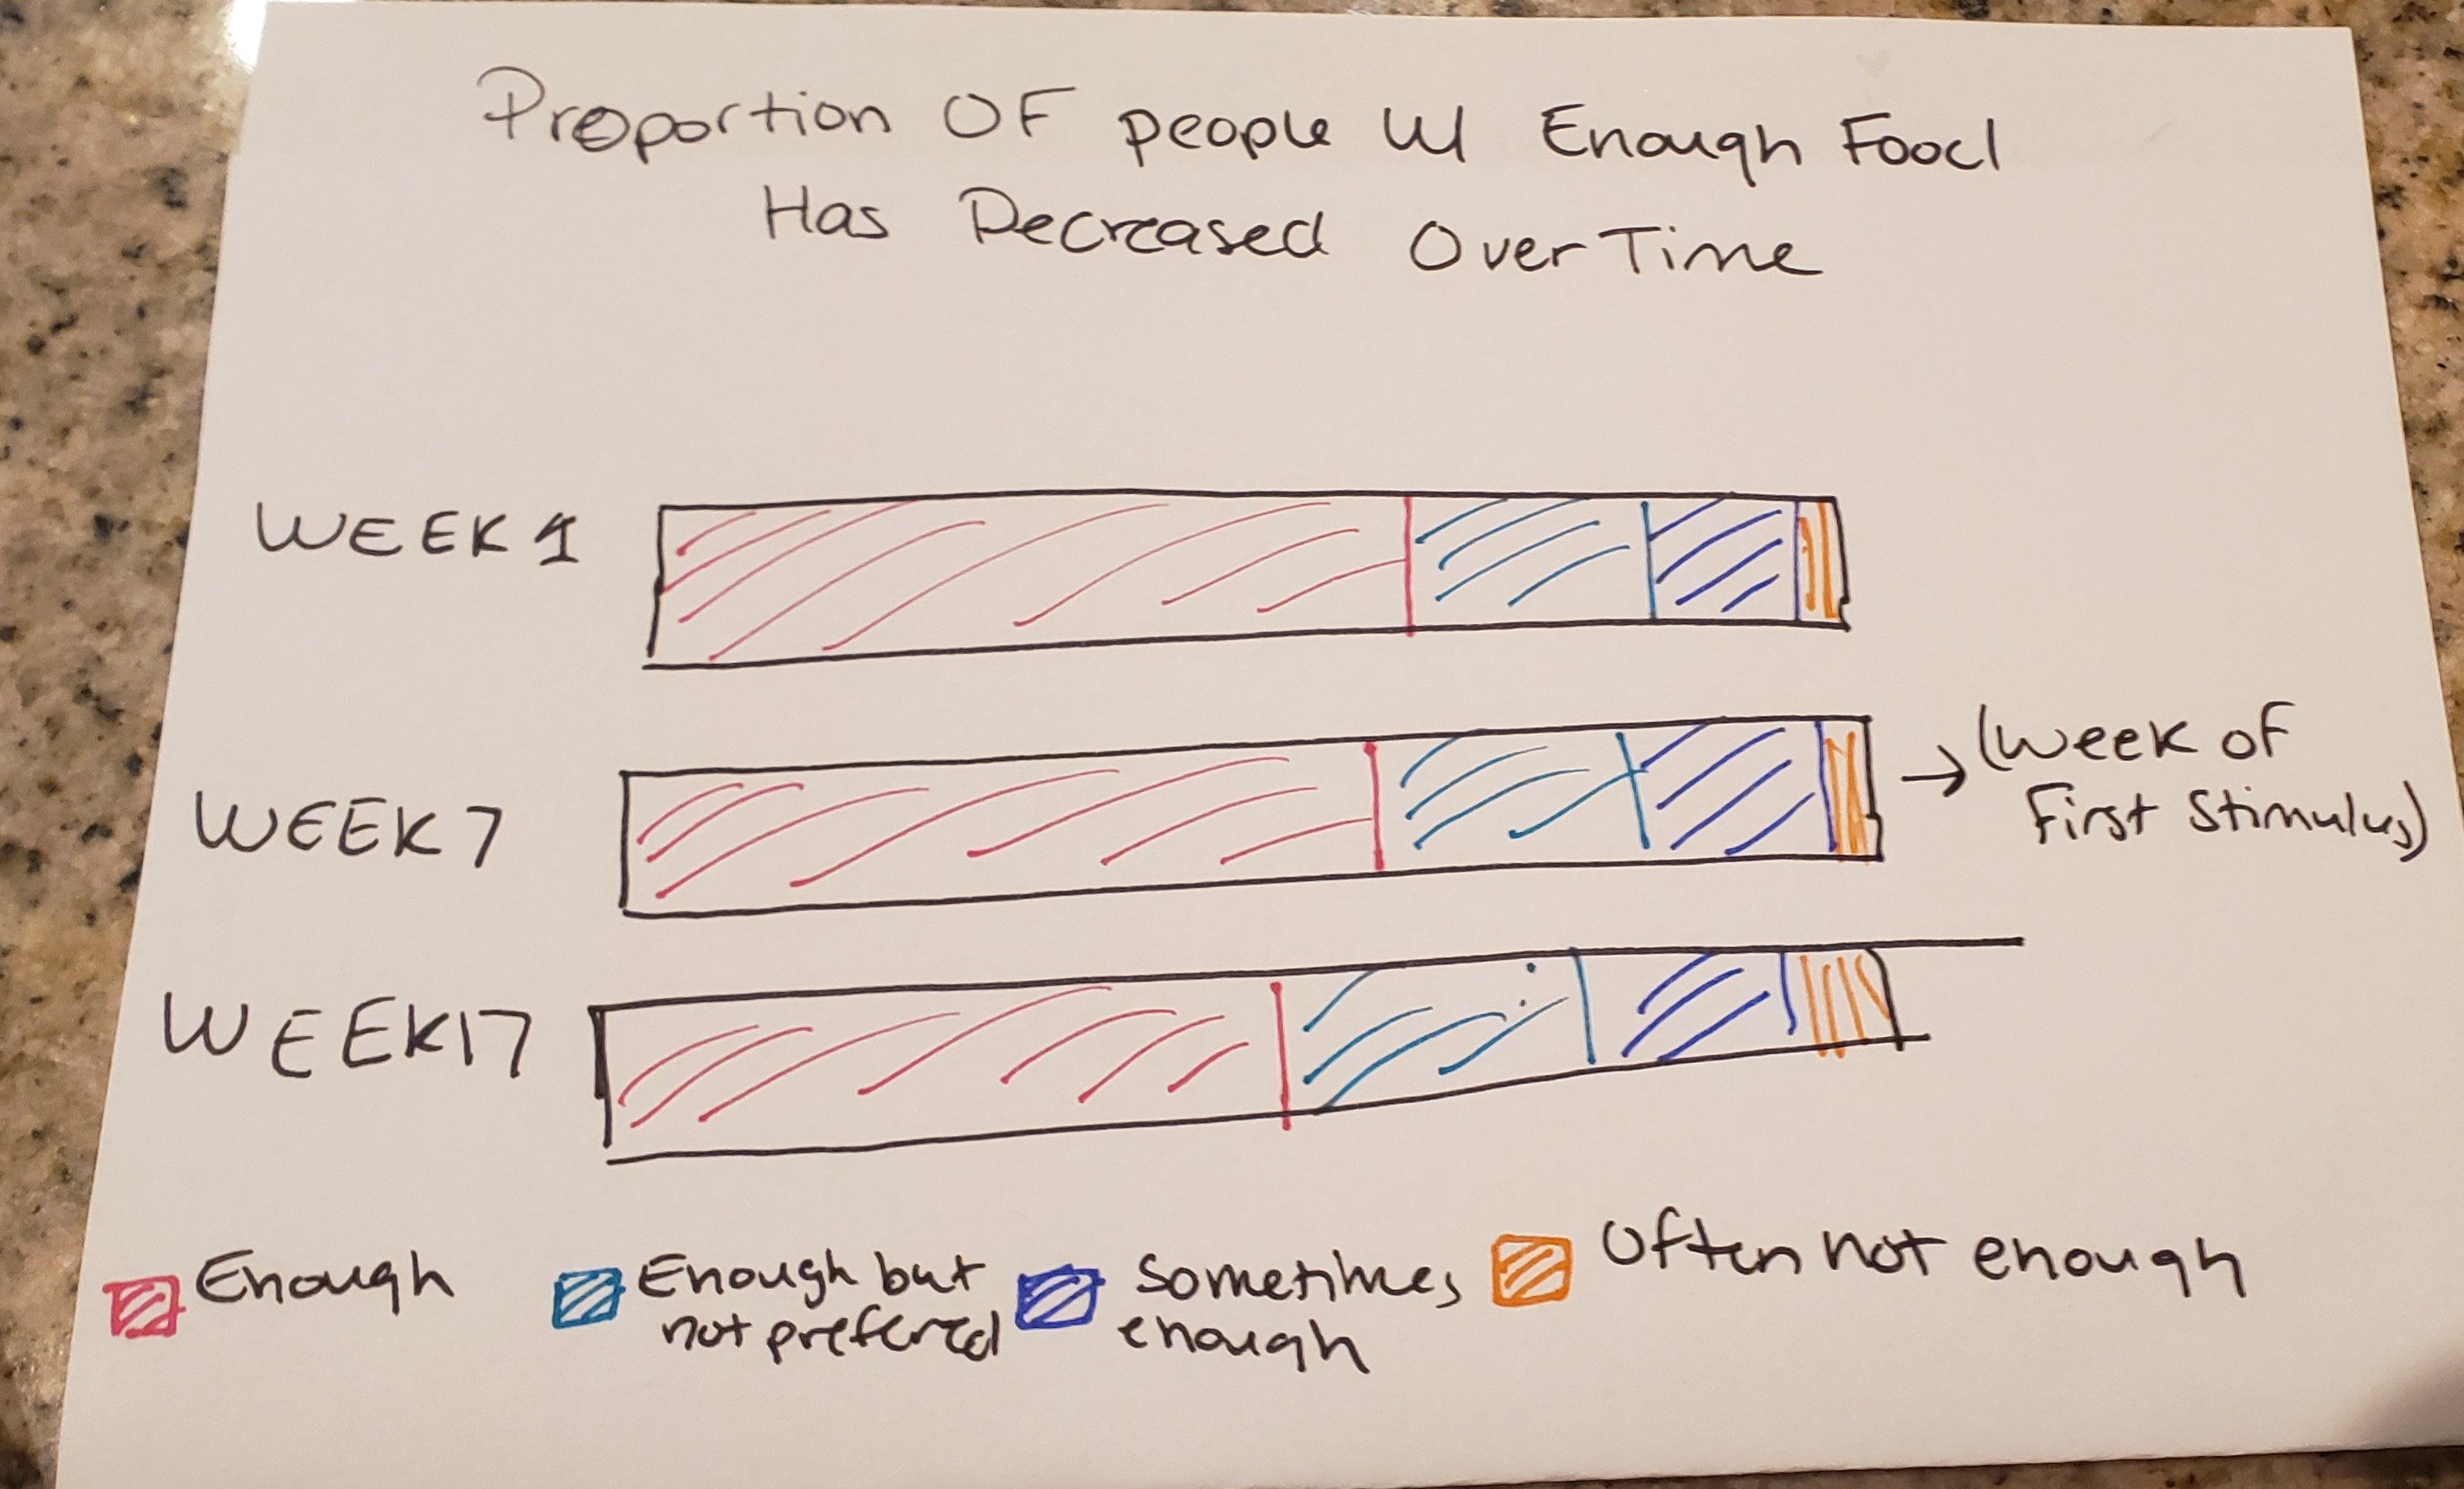 Proportion OF people w/ Enough Food
Has Decreased Over Time
WEEK 1
WEEK 7
→ (Week of
First Stimulus)
WEEK 17
Enough
Enough but
not prefered
Sometimes
enough
Often not enough